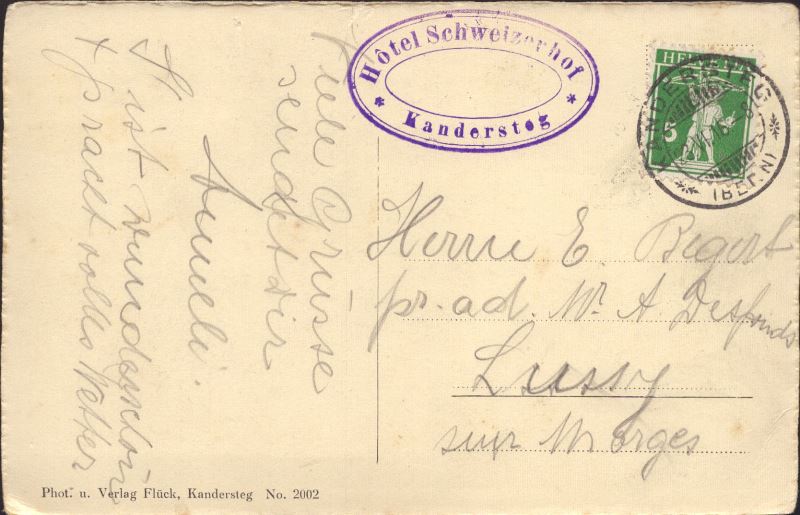 Viele Grüsse
sendet dir
Anneli.
ist wunderschön
+ prachtvolles Wetter
Hôtel Schweizerhof
* Kandersteg *
HELVETIA
5
KANDERSTEG
(BERN)
Herrn E. Begert
pr. ad. Mr A Desfonds
Lussy
sur Morges
Phot. u. Verlag Flück, Kandersteg No. 2002